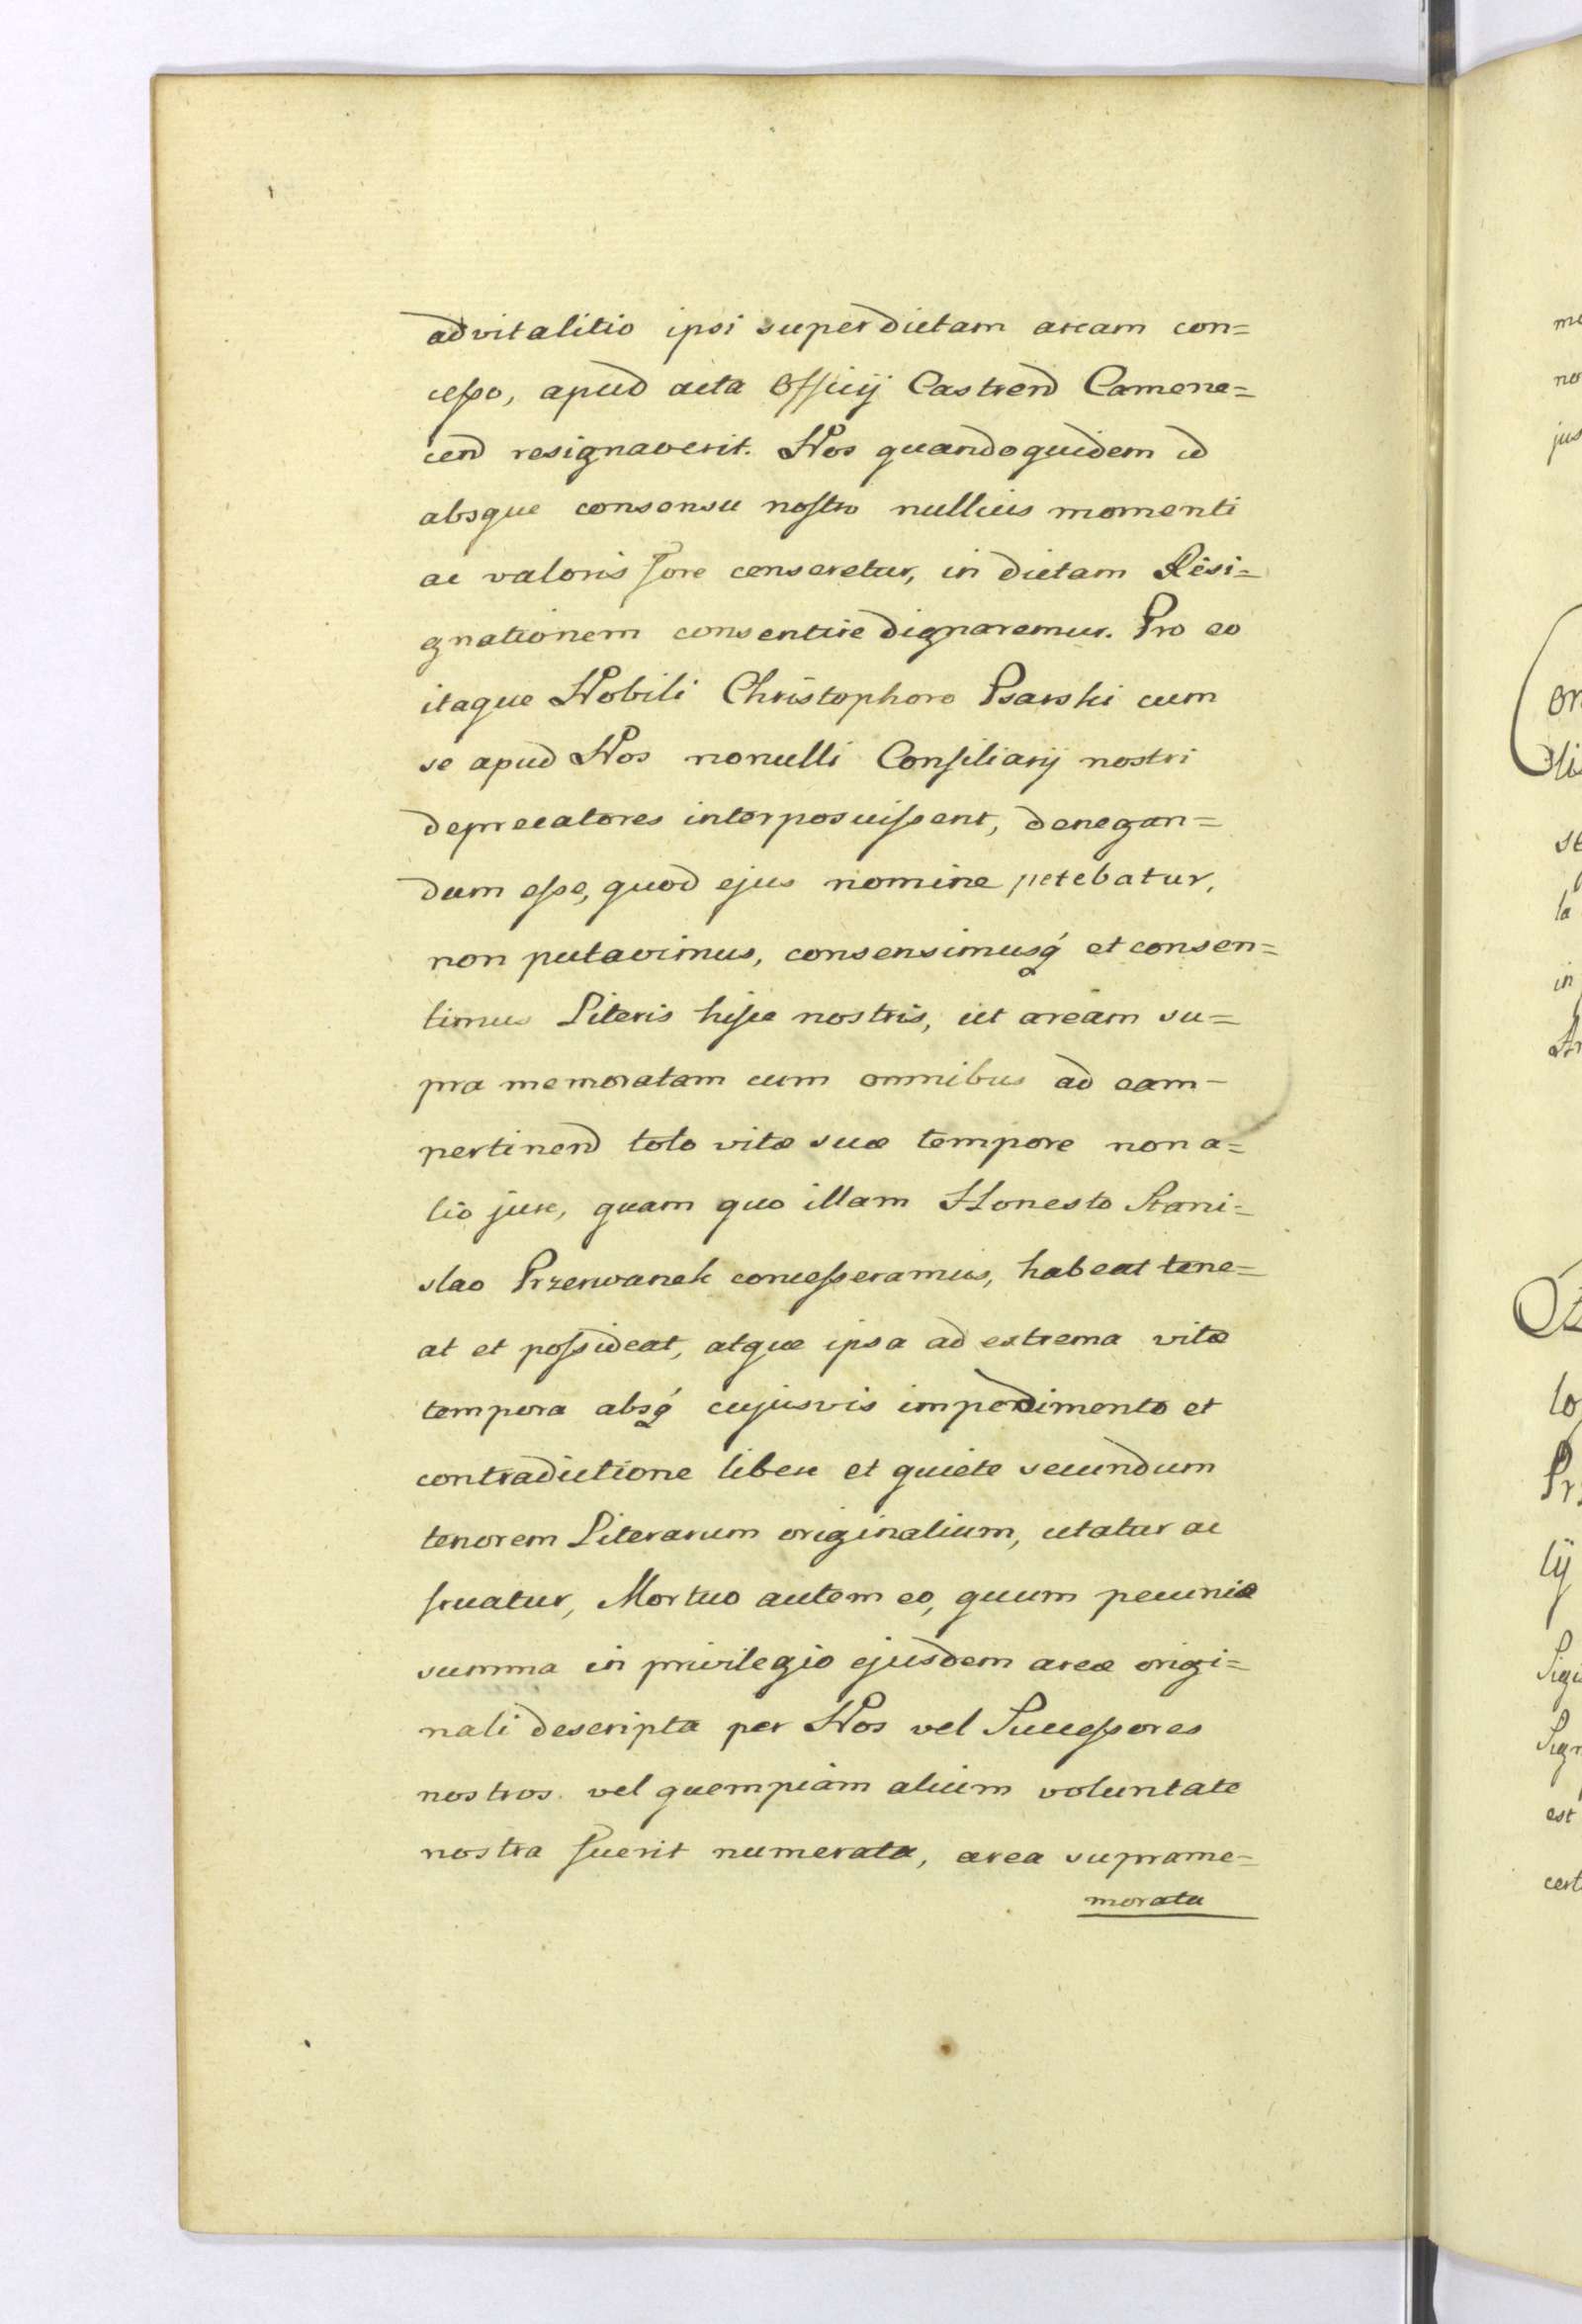 advitalitio ipsi super dictam aream con=
cesso, apud acta Officij Castrend Camene=
cend resignaverit. Nos quandoquidem id
absque consensu nostro nullius momenti
ac valoris fore censeretur, in dictam Resi=
gnationem consentire dignaremur. Pro eo
itaque Nobili Christophoro Psarski cum
se apud Nos nonulli Consiliarij nostri
deprecatores interposuissent, denegan=
dum esse, quod ejus nomine petebatur,
non putavimus, consensimusq́ et consen=
timus Literis hisce nostris, ut aream su=
pra memoratam cum omnibus ad eam-
pertinend toto vitæ suæ tempore non a=
lio jure, quam quo illam Honesto Stani=
slao Przerwanek concesseramus, habeat tene=
at et possideat, atque ipsa ad extrema vitæ
tempora absq́ cujusvis impedimento et
contradictione libere et quiete secundum
tenorem Literarum originalium, utatur ac
fruatur, Mortuo autem eo, quum pecuniæ
summa in privilegio ejusdem areæ origi=
nali descripta per Nos vel Successores
nostros vel quempiam alium voluntate
nostra fuerit numerata, area suprame=
morata